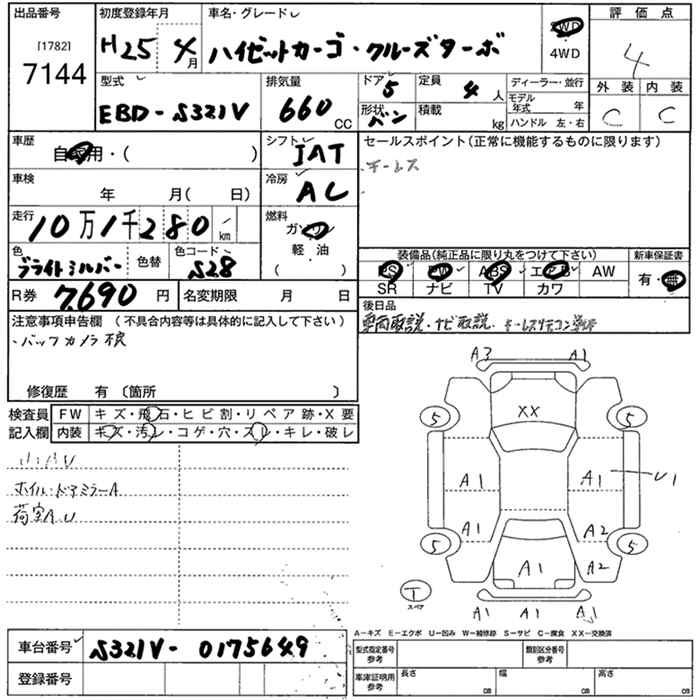 出品番号 初度登録年月 車名・グレード 2WD 評価点
[1782] H25 4月 ハイゼットカーゴ・クルーズターボ 4WD 4
7144
型式 排気量 ドア 5 定員 4人 ディーラー・並行 外装 内装
EBD-S321V 660 CC 形状 バン 積載 kg モデル年式 年 C C
ハンドル 左・右
車歴 自家用・( ) シフト IAT セールスポイント(正常に機能するものに限ります)
キーレス
車検 年 月( 日) 冷房 AL
走行 10万1千280 km 燃料 ガソリン
軽・油
( )
色 ブライトシルバー 色替 色コード S28
装備品(純正品に限り丸をつけて下さい) 新車保証書
PS PW ABS エアB AW 有・無
SR ナビ TV カワ
R券 7,690円 名変期限 月 日
後日品
車両取説・ナビ取説
注意事項申告欄 (不具合内容等は具体的に記入して下さい)
・バックカメラ不良
修復歴 有 〔箇所 〕
検査員記入欄 FW キズ・飛石・ヒビ割・リペア跡・X要
内装 キズ・汚レ・コゲ・穴・スレ・キレ・破レ
ホイル・ドアミラーA
荷室AU
A3 A1
XX
5 5
A1 A1 U1
A1 A2
5 5
A1 A2
T
スペア
A1 A1 A1
A-キズ E-エクボ U-凹み W-補修跡 S-サビ C-腐食 XX-交換済
車台番号 S321V-0175649
型式指定番号 参考 類別区分番号 参考
登録番号
車庫証明用 参考 長さ cm 幅 cm 高さ cm